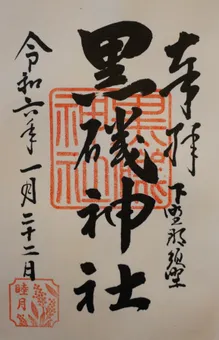 奉拝
下野那須野
黒磯神社
黒磯
神社
令和六年一月二十二日
睦月